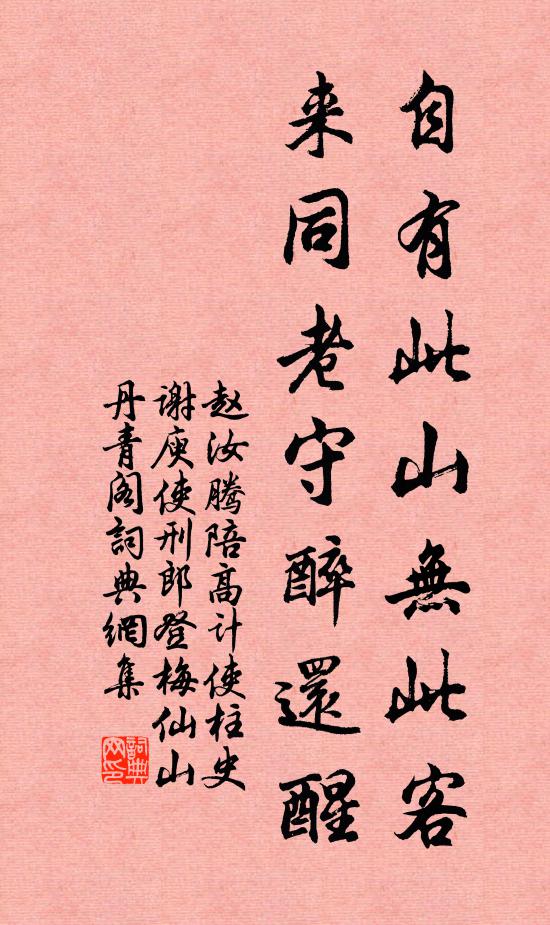 自有此山無此客
来同老守醉還醒
赵汝騰陪高计使柱史
谢庾使刑郎登梅仙山
丹青阁詞典網集
詞典网印